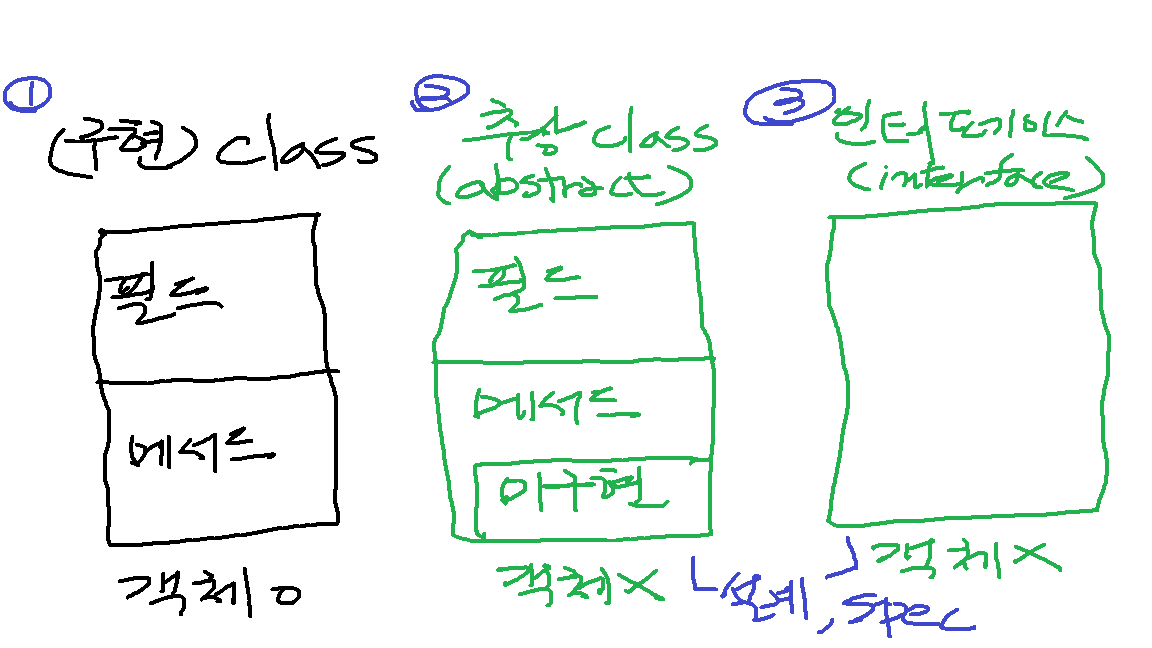 ①
(구현) class
필드
메서드
객체 o
②
추상 class
(abstract)
필드
메서드
미구현
객체 X
③
인터프페이스
(interface)
객체 X
설계, spec